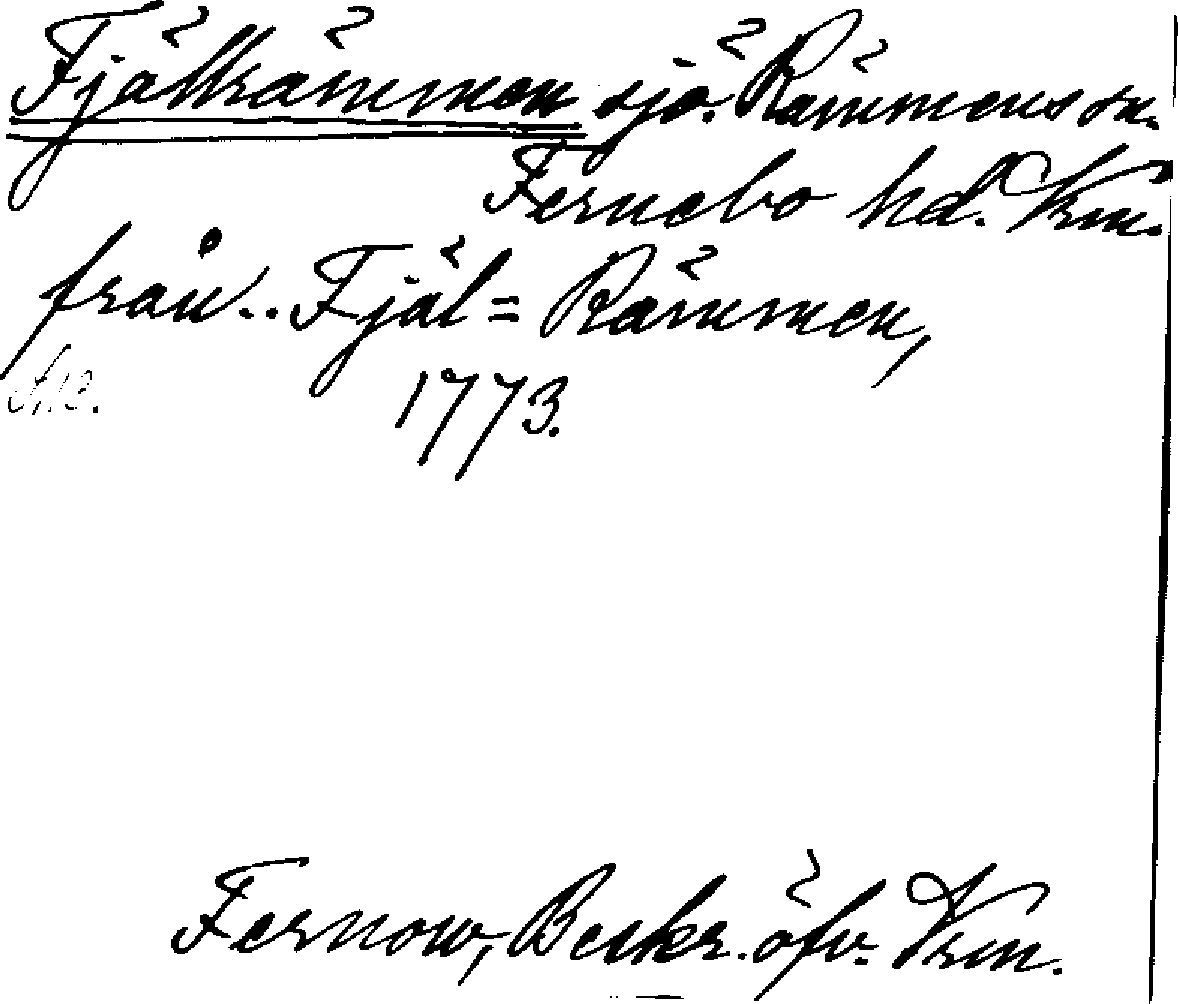 Fjällrämmen sjö. Rämmens sn.
Fernebo hd. Vrm.
från.. Fjäl=Rämmen,
1773.
Fernow, Beskr. öfv. Vrm.